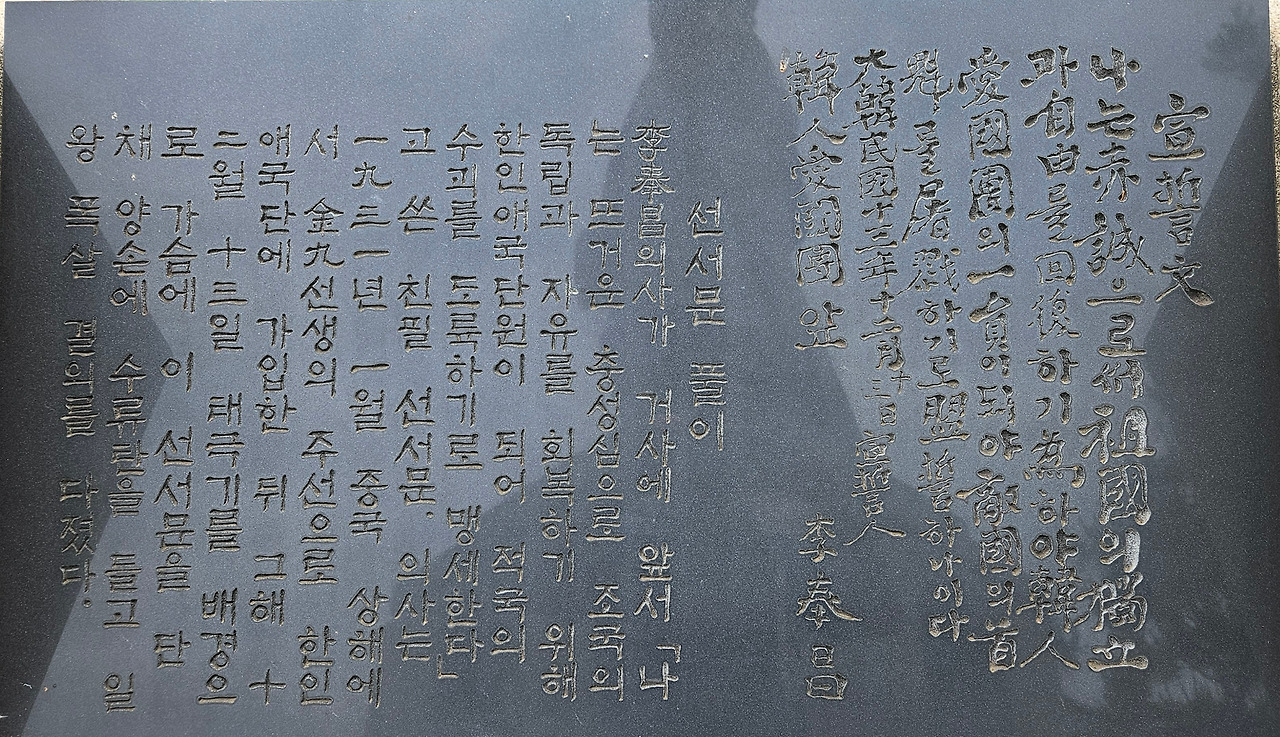 宣誓文
나는赤誠으로써祖國의獨立
과自由를回復하기爲하야韓人
愛國團의一員이되야敵國의首
魁를屠戮하기로盟誓하나이다
大韓民國十三年十二月十三日 宣誓人
李奉昌
韓人愛國團 앞
선서문 풀이
李奉昌의사가 거사에 앞서 「나
는 뜨거운 충성심으로 조국의
독립과 자유를 회복하기 위해
한인애국단원이 되어 적국의
수괴를 도륙하기로 맹세한다」
고 쓴 친필 선서문. 의사는
一九三一년 一월 중국 상해에
서 金九선생의 주선으로 한인
애국단에 가입한 뒤 그해 十
二월 十三일 태극기를 배경으
로 가슴에 이 선서문을 단
채 양손에 수류탄을 들고 일
왕 폭살 결의를 다졌다.